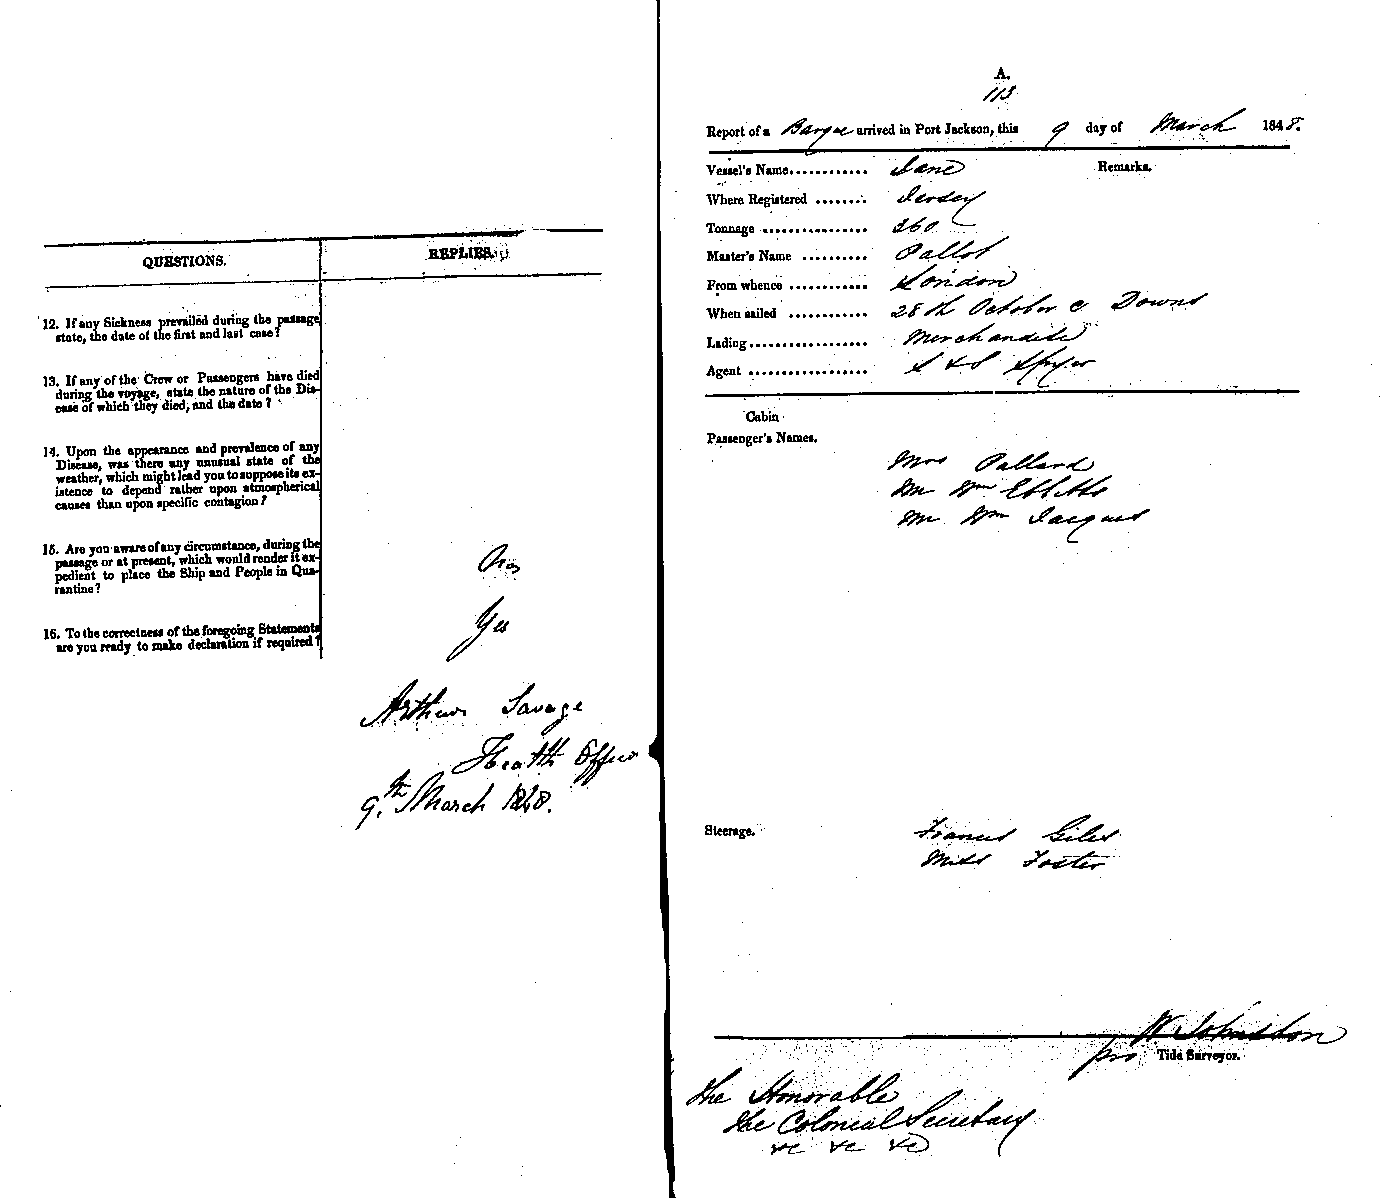 QUESTIONS.
REPLIES.
12. If any Sickness prevailed during the passage
state, the date of the first and last case?
13. If any of the Crew or Passengers have died
during the voyage, state the nature of the Dis-
ease of which they died, and the date?
14. Upon the appearance and prevalence of any
Disease, was there any unusual state of the
weather, which might lead you to suppose its ex-
istence to depend rather upon atmospherical
causes than upon specific contagion?
15. Are you aware of any circumstance, during the
passage or at present, which would render it ex-
pedient to place the Ship and People in Qua-
rantine?
No
16. To the correctness of the foregoing Statements
are you ready to make declaration if required?
Yes
Arthur Savage
Health Officer
9th March 1848.
A.
113
Report of a Barque arrived in Port Jackson, this 9 day of March 1848.
Vessel's Name............ Jane
Remarks.
Where Registered ........ Jersey
Tonnage ................ 260
Master's Name .......... Pallot
From whence ............ London
When sailed ............ 28th October Downs
Lading.................. Merchandise
Agent .................. S &
Cabin
Passenger's Names.
Mrs Pallard
Mr Wm Ebbitts
Mr Wm Jacques
Steerage.
Francis Giles
Miss Foster
W Johnston
pro Tide Surveyor.
The Honorable
the Colonial Secretary
&c &c &c